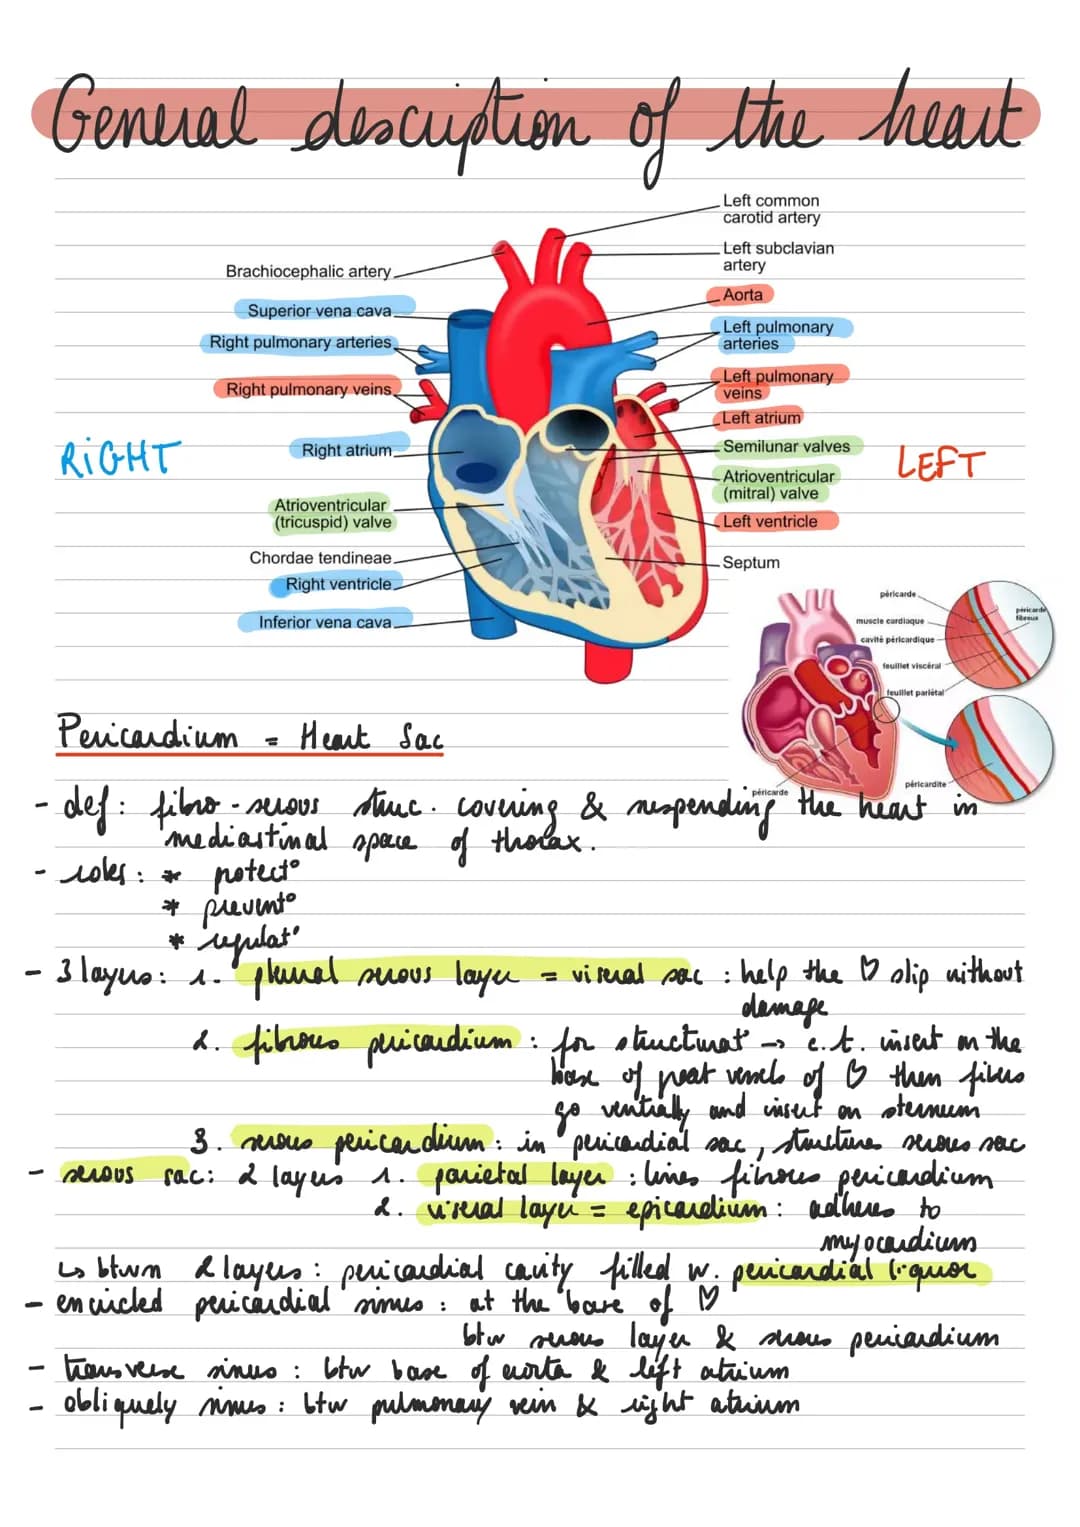 General description of the heart
Left common
carotid artery
Left subclavian
artery
Brachiocephalic artery
Aorta
Superior vena cava
Left pulmonary
arteries
Right pulmonary arteries
Left pulmonary
veins
Right pulmonary veins
Left atrium
RiGHT
Right atrium
Semilunar valves
LEFT
Atrioventricular
(mitral) valve
Atrioventricular
(tricuspid) valve
Left ventricle
Chordae tendineae
Septum
Right ventricle
Inferior vena cava
péricarde
péricarde
fibreux
muscle cardiaque
cavité péricardique
feuillet viscéral
feuillet pariétal
péricardite
péricarde
Pericardium = Heart Sac
- def: fibro-serous struc. covering & suspending the heart in
mediastinal space of thorax.
- roles: * protect°
* prevent°
* regulat°
- 3 layers: 1. pleural serous layer = viseral sac : help the ♡ slip without
damage
2. fibrous pericardium : for structurat° → c.t. insert on the
base of great vessels of ♡ then fibers
go ventrally and insert on sternum
3. serous pericardium: in pericardial sac, structure serous sac
- serous sac: 2 layers 1. parietal layer : lines fibrous pericardium
2. viseral layer = epicardium: adheres to
myocardium
↳ btwn 2 layers: pericardial cavity filled w. pericardial liquor
- encircled pericardial sinus : at the base of ♡
btw serous layer & serous pericardium
- transverse sinus : btw base of aorta & left atrium
- obliquely sinus : btw pulmonary vein & right atrium